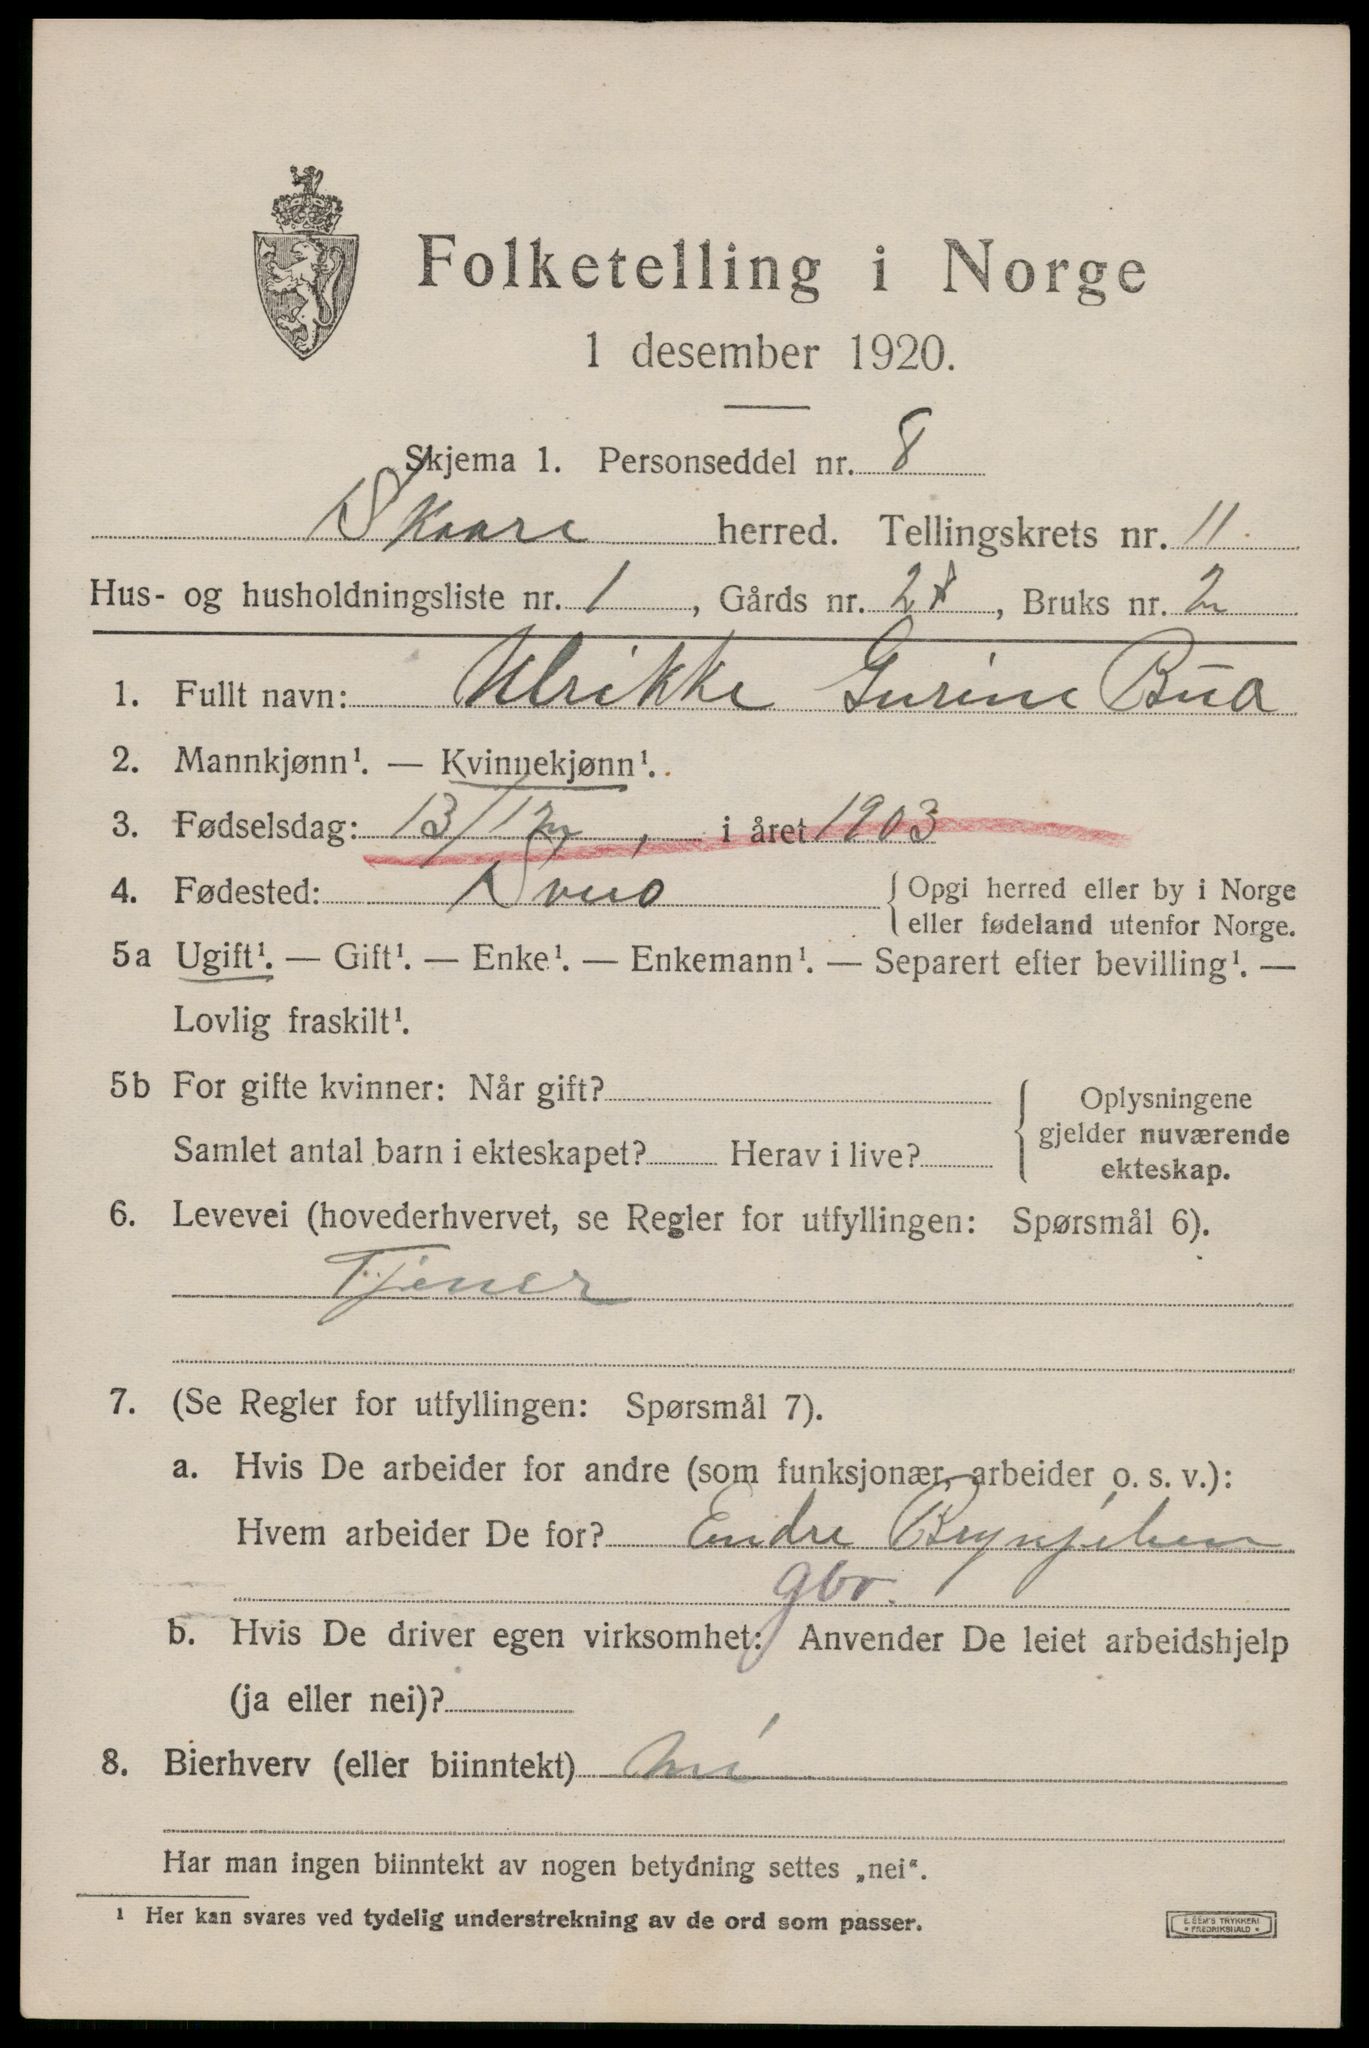 Folketelling i Norge
1 desember 1920.
Skjema 1. Personseddel nr. 8
Skaare herred. Tellingskrets nr. 11
Hus- og husholdningsliste nr. 1, Gårds nr. 28, Bruks nr. 2
1. Fullt navn: Ulrikke Gurine Bua
2. Mannkjønn¹. — Kvinnekjønn¹.
3. Fødselsdag: 13/12, i året 1903
4. Fødested: Sveio { Opgi herred eller by i Norge
eller fødeland utenfor Norge.
5a Ugift¹. — Gift¹. — Enke¹. — Enkemann¹. — Separert efter bevilling¹. —
Lovlig fraskilt¹.
5b For gifte kvinner: Når gift?
Samlet antal barn i ekteskapet? Herav i live?
Oplysningene
gjelder nuværende
ekteskap.
6. Levevei (hovederhvervet, se Regler for utfyllingen: Spørsmål 6).
Tjener
7. (Se Regler for utfyllingen: Spørsmål 7).
a. Hvis De arbeider for andre (som funksjonær, arbeider o. s. v.):
Hvem arbeider De for? Endre
gbr.
b. Hvis De driver egen virksomhet: Anvender De leiet arbeidshjelp
(ja eller nei)?
8. Bierhverv (eller biinntekt) nei
Har man ingen biinntekt av nogen betydning settes „nei“.
¹ Her kan svares ved tydelig understrekning av de ord som passer.
E. SEM'S TRYKKERI
• FREDRIKSHALD •